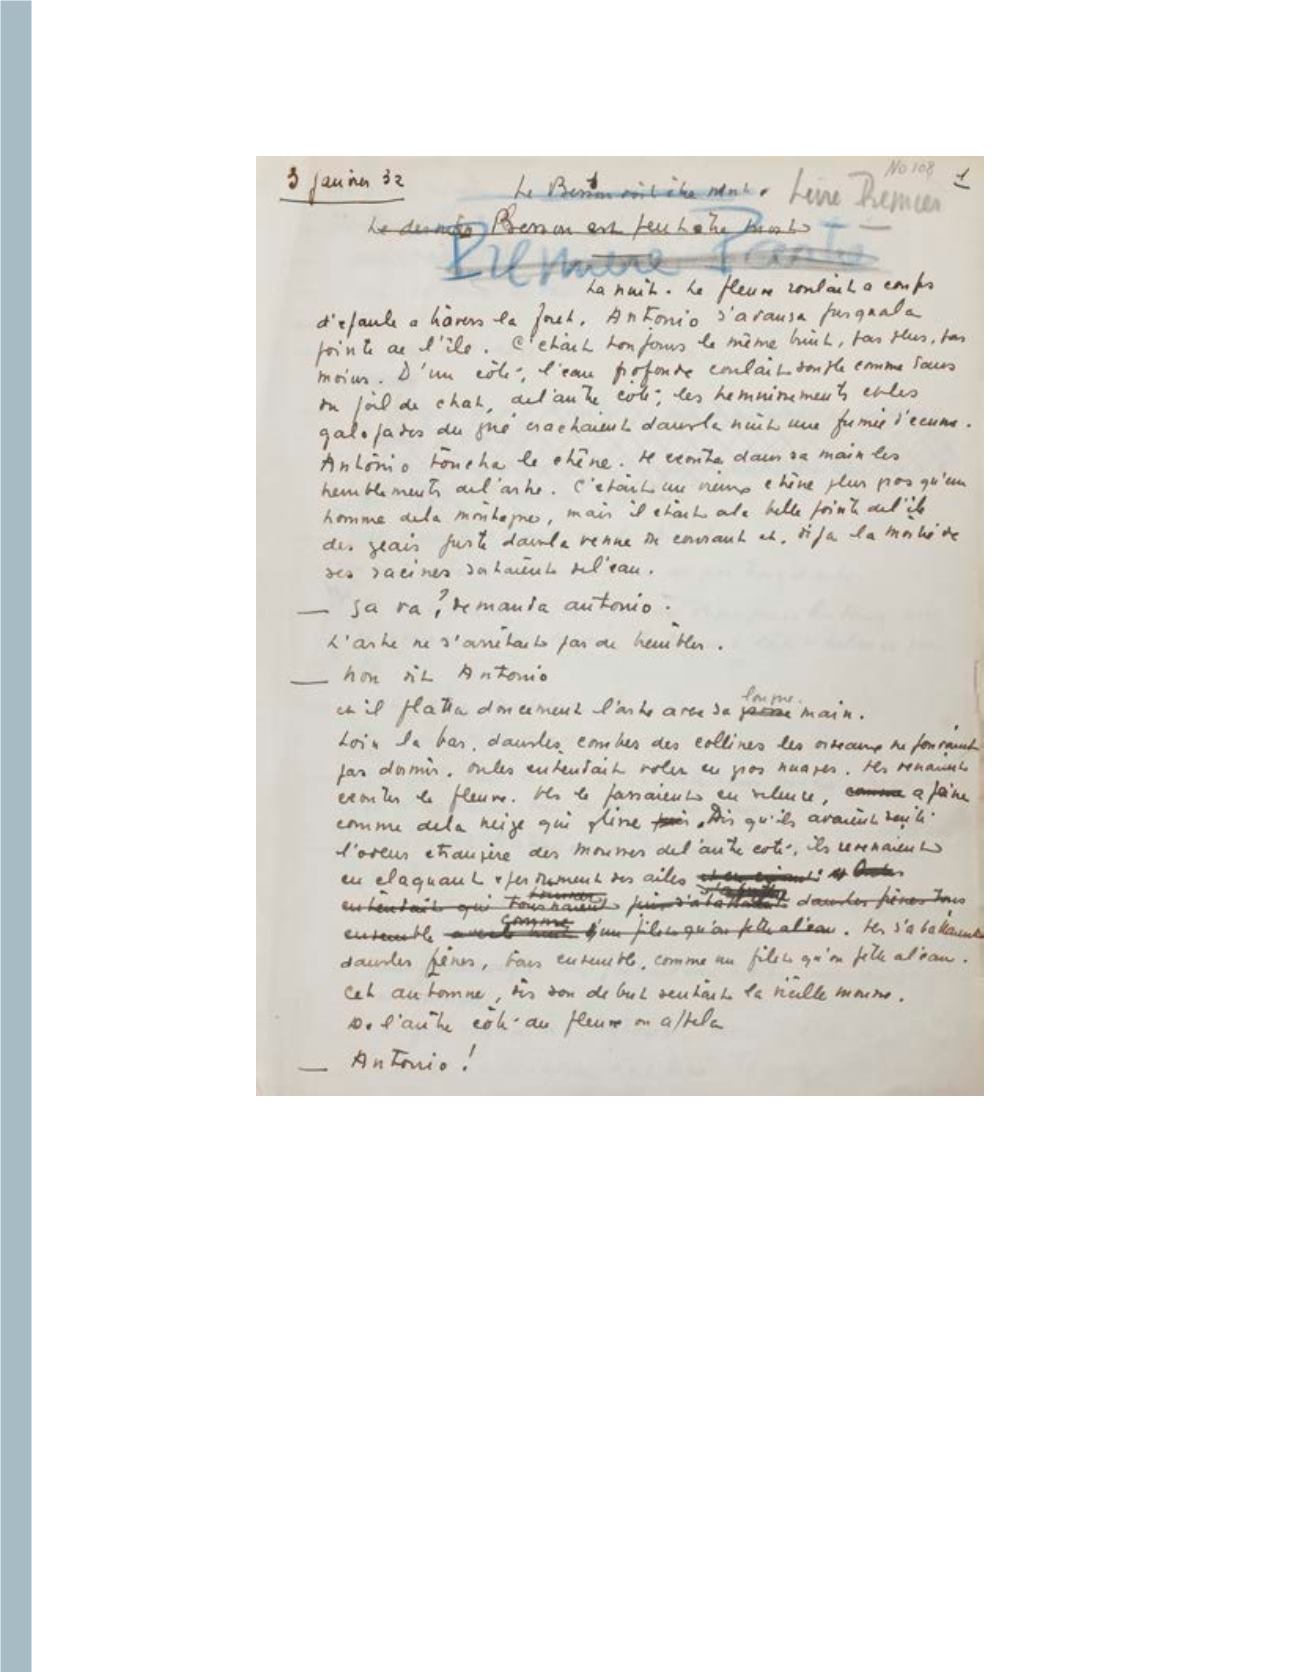 No 108
3 janvier 32
1
Le Besson doit être mort.
Livre Premier
Le dernier Besson est peut etre mort
Première Partie
La nuit. Le fleuve roulait a coups
d'epaule a travers la foret. Antonio s'avança jusqu'ala
pointe de l'île. C'etait toujours le même bruit, pas plus, pas
moins. D'un côté, l'eau profonde coulait souple comme dans
du poil de chat, del'autre côté, les hennissements et les
galopades du gué crachaient dans la nuit une fumée d'ecume.
Antônio toucha le chêne. Il ecouta dans sa main les
tremblements del'arbre. C'etait un vieux chêne plus gros qu'un
homme dela montagne, mais il etait ala belle pointe del'île
des geais juste dans la venue du courant et, déja la moitié de
ses racines sortaient del'eau.
— ça va ? demanda antonio.
L'arbre ne s'arrêtait pas de trembler.
— non dit Antonio
et il flatta doucement l'arbre avec sa
longue
main.
Loin la bas, dans les combes des collines les oiseaux ne pouvaient
pas dormir. On les entendait voler en gros nuages. Ils venaient
ecouter le fleuve. Ils le passaient en silence, comme a peine
comme dela neige qui glisse puis. Dès qu'ils avaient senti
l'odeur etrangère des mousses del'autre coté, ils revenaient
en claquant eperdument des ailes
tourner
entendait qui tournaient puis s'abattait dans les frênes tous
comme
ensemble d'un filet qu'on jette al'eau. Ils s'abattaient
dans les frênes, tous ensemble, comme un filet qu'on jette al'eau.
Cet automne, dès son debut sentait la vieille mousse.
De l'autre côté du fleuve on appela
— Antonio !